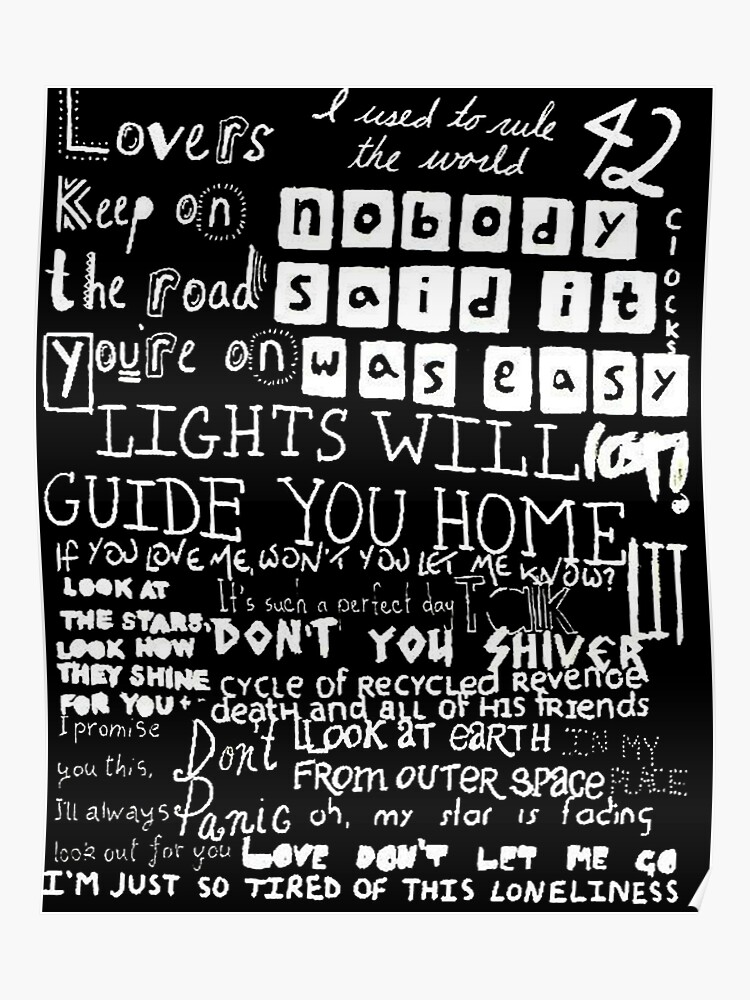 Lovers
Keep on
the road
you're on
I used to rule
the world
42
CLOCKS
nobody
said it
was easy
LIGHTS WILL
GUIDE YOU HOME
lost?
IF YOU LOVE ME, WON'T YOU LET ME KNOW?
LOOK AT
THE STARS,
LOOK HOW
THEY SHINE
FOR YOU
It's such a perfect day
Talk
DON'T YOU SHIVER
CYCLE OF RECYCLED REVENGE
death and all of his friends
I promise
you this,
I'll always
look out for you
Don't
Panic
LOOK AT EARTH
FROM OUTER SPACE
IN MY
PLACE
oh, my star is fading
LOVE DON'T LET ME GO
I'M JUST SO TIRED OF THIS LONELINESS